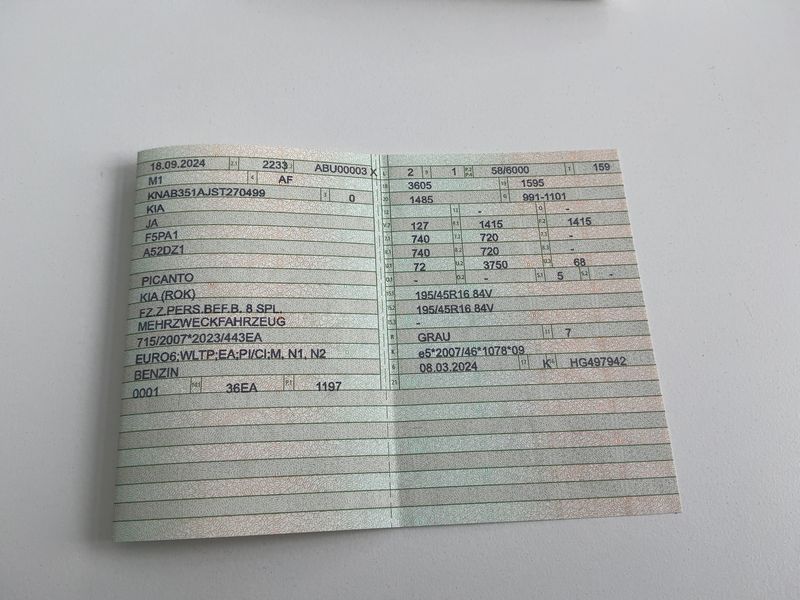 18.09.2024 2.1 2233 ABU00003 X
M1 4 AF
KNAB351AJST270499 3 0
KIA
JA
F5PA1
A52DZ1
PICANTO
KIA (ROK)
FZ.Z.PERS.BEF.B. 8 SPL.
MEHRZWECKFAHRZEUG
715/2007*2023/443EA
EURO6;WLTP;EA;PI/CI;M, N1, N2
BENZIN
0001 36EA P.1 1197
2 9 1 58/6000 T 159
18 3605 19 1595
20 1485 G 991-1101
- -
127 1415 1415
740 720 -
740 720 -
72 3750 68
- - S.1 5 S.2 -
195/45R16 84V
195/45R16 84V
-
R GRAU 11 7
K e5*2007/46*1078*09
6 08.03.2024 17 K 16 HG497942
21